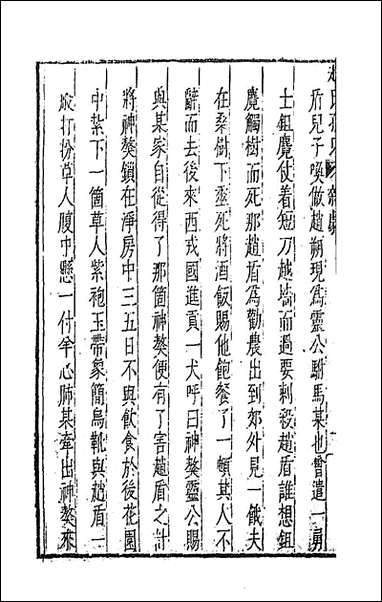 趙氏孤兒 雜劇
盾兒子喚做趙朔現爲靈公駙馬某也曾遣一勇
士鉏麑仗着短刀越墻而過要刺殺趙盾誰想鉏
麑觸樹而死那趙盾爲勸農出到郊外見一餓夫
在桑樹下垂死將酒飯賜他飽餐了一頓其人不
辭而去後來西戎國進貢一犬呼曰神獒靈公賜
與某家自從得了那箇神獒便有了害趙盾之計
將神獒鎖在淨房中三五日不與飲食於後花園
中紮下一箇草人紫袍玉帶象簡烏靴與趙盾一
般打扮草人腹中懸一付羊心肺某牽出神獒來